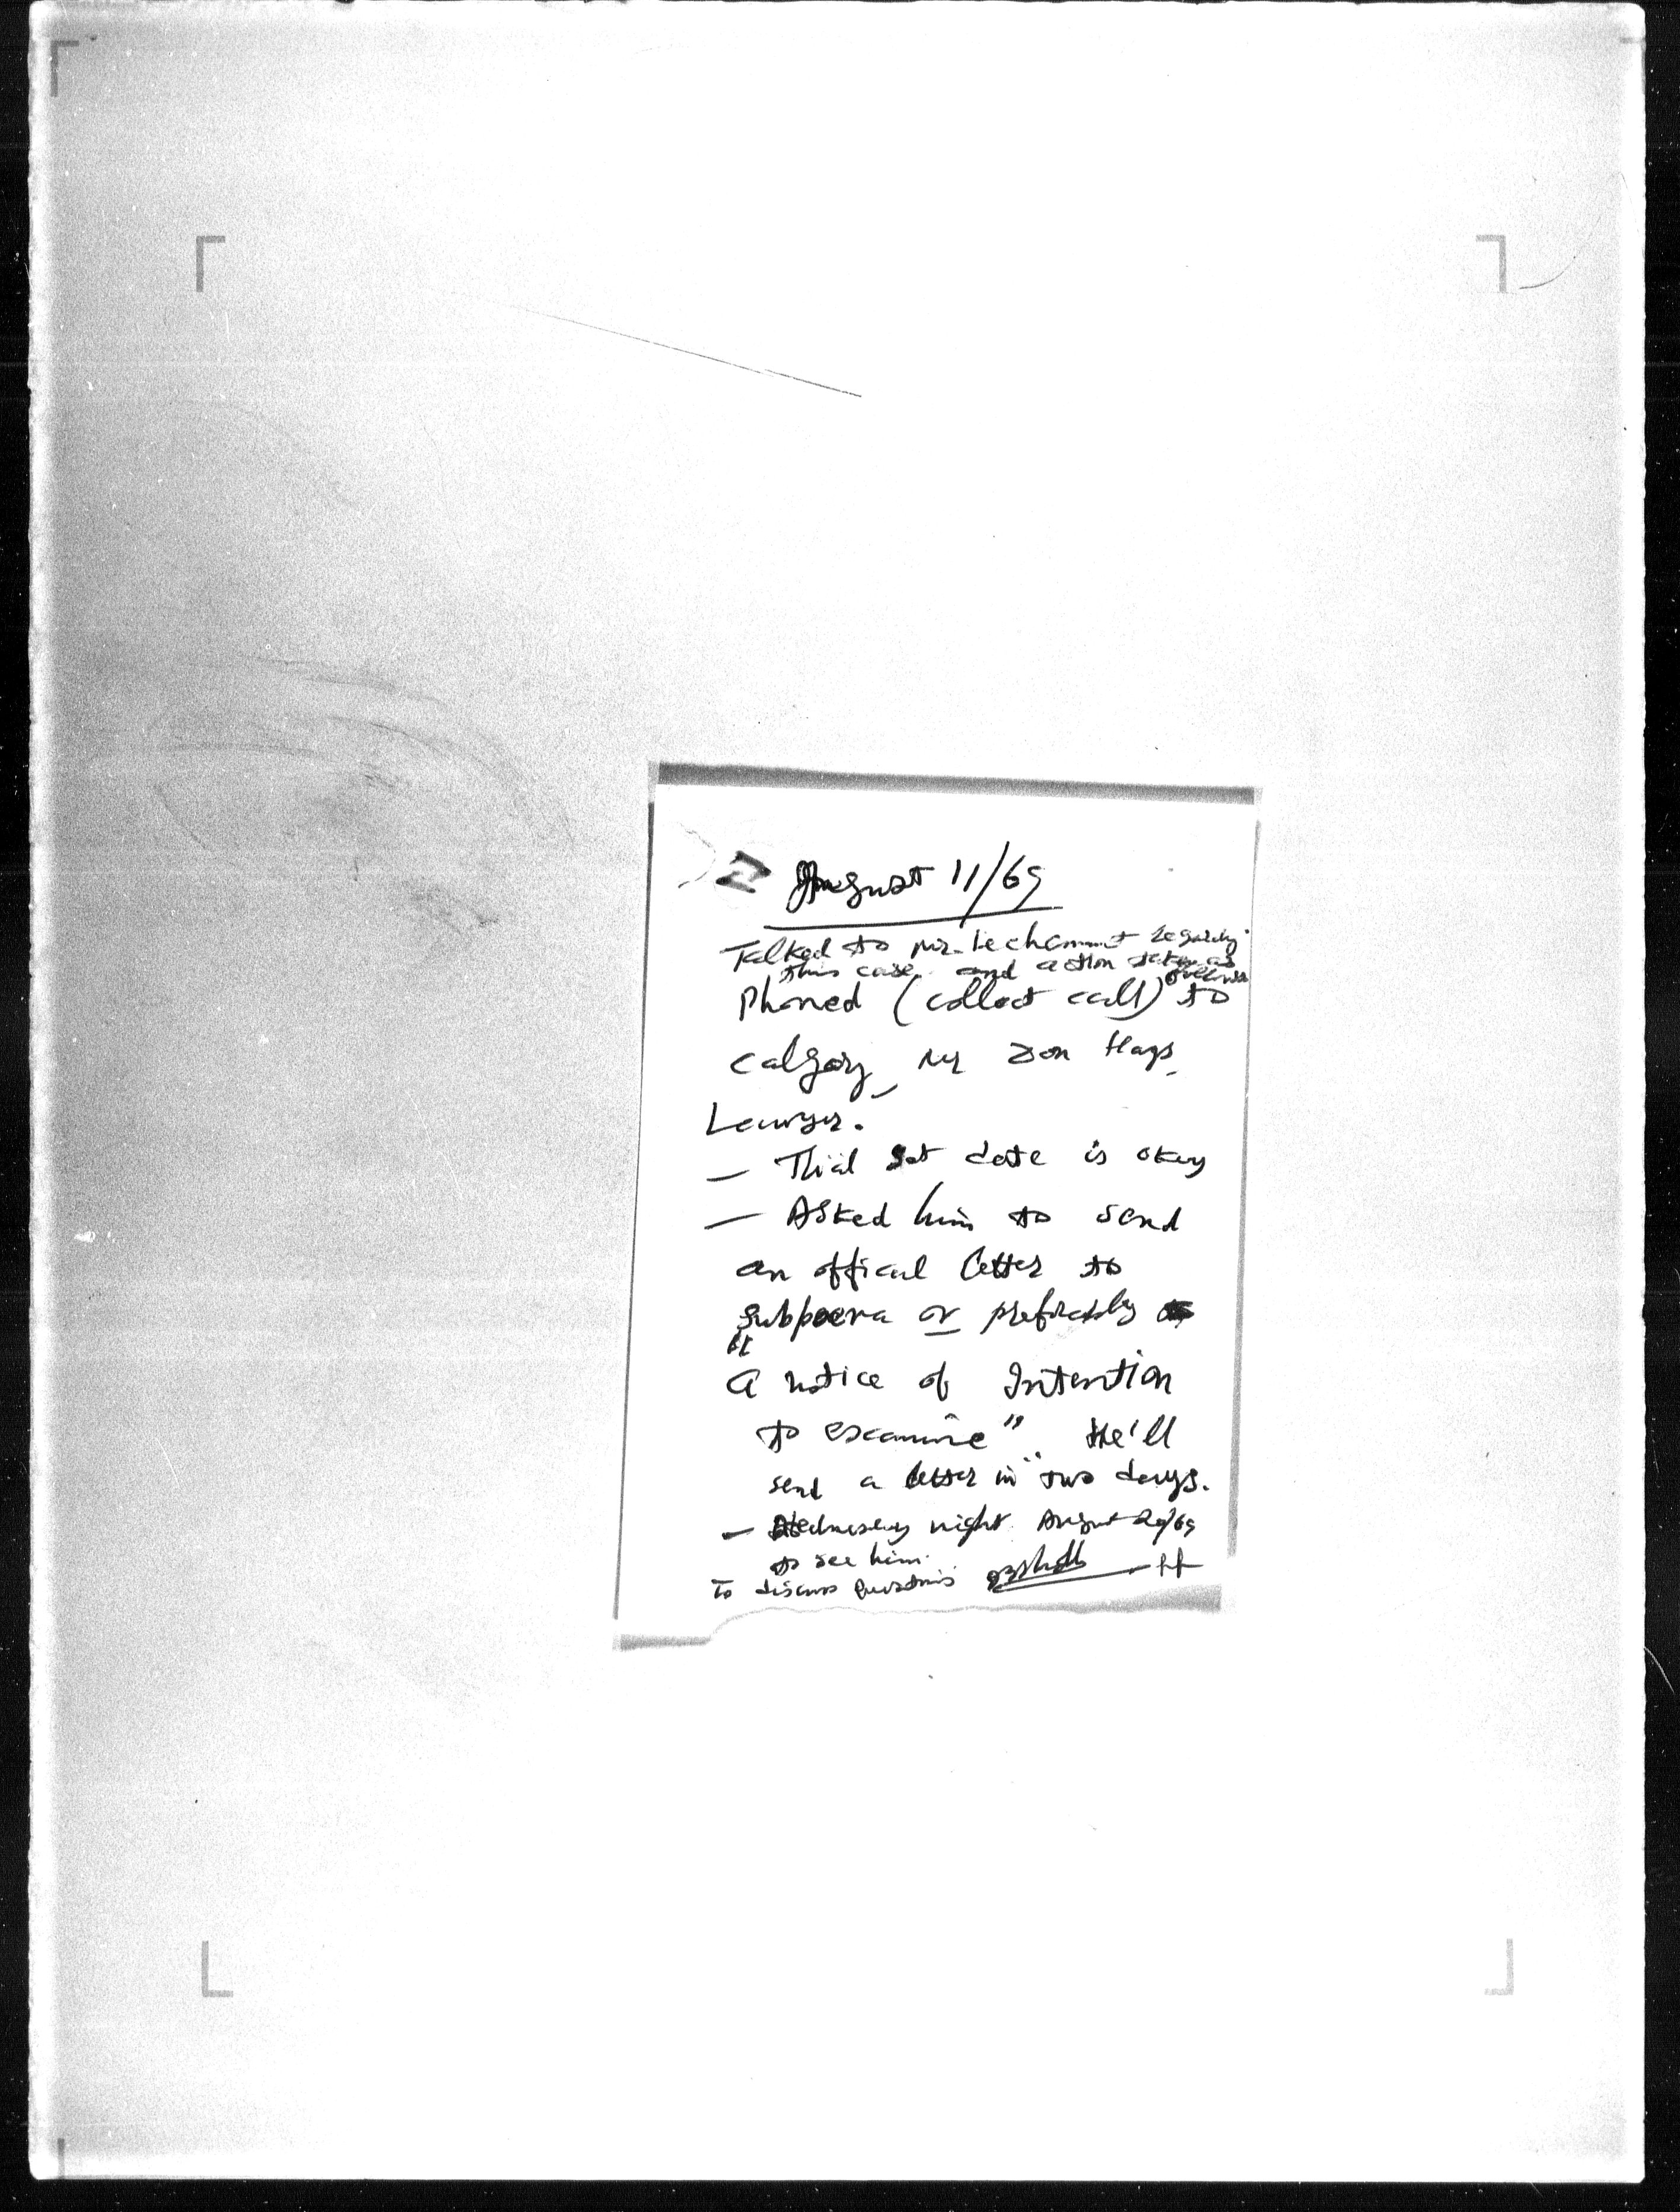 August 11/69
Talked to Mr. Lechamint regarding
this case and action taken as
follows
Phoned (collect call) to
Calgary, Mr Don Hays,
Lawyer.
— Trial set date is okay
— Asked him to send
an offical letter to
subpoena or preferably
"
a notice of Intention
to examine". He'll
send a letter in two days.
— Wednesday night August 20/69
to see him.
To discuss questions